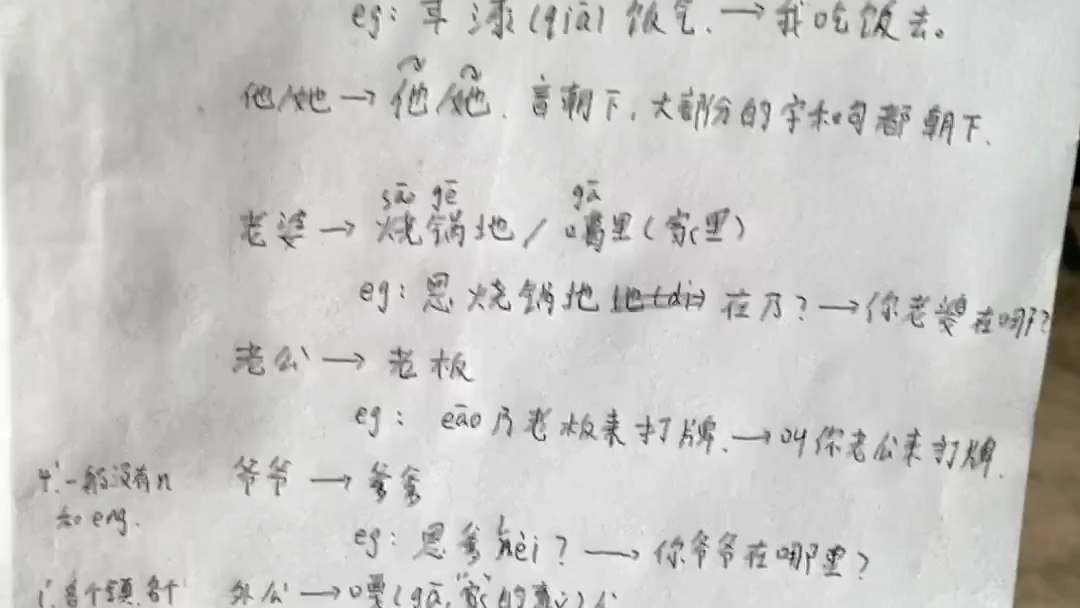 eg: 耳涤(qiā)饭气. → 我吃饭去。
他/她 → 他/她. 音朝下, 大部分的字和句都朝下.
sāo gē gā
老婆 → 烧锅地 / 嘎里(家里)
eg: 恩烧锅地 在乃? → 你老婆在哪?
老公 → 老板
eg: eāo 乃老板来打牌. → 叫你老公来打牌.
4. 一般没有n 爷爷 → 爹爹
和eng.
eg: 恩爹 hèi? → 你爷爷在哪里?
各个镇, 各个 外公 → 嘎(gā, "家"的意)公